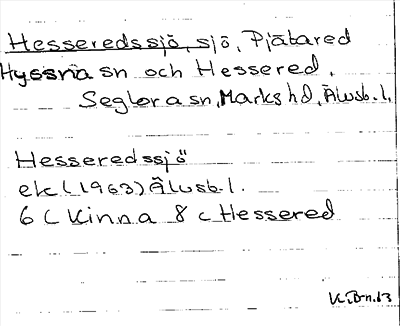 Hesseredssjö, sjö, Pjätared
Hyssna sn och Hessered,
Seglora sn, Marks hd, Älvsb. l.
Hesseredssjö
ek (1963) Älvsb. l.
6 C Kinna 8 c Hessered